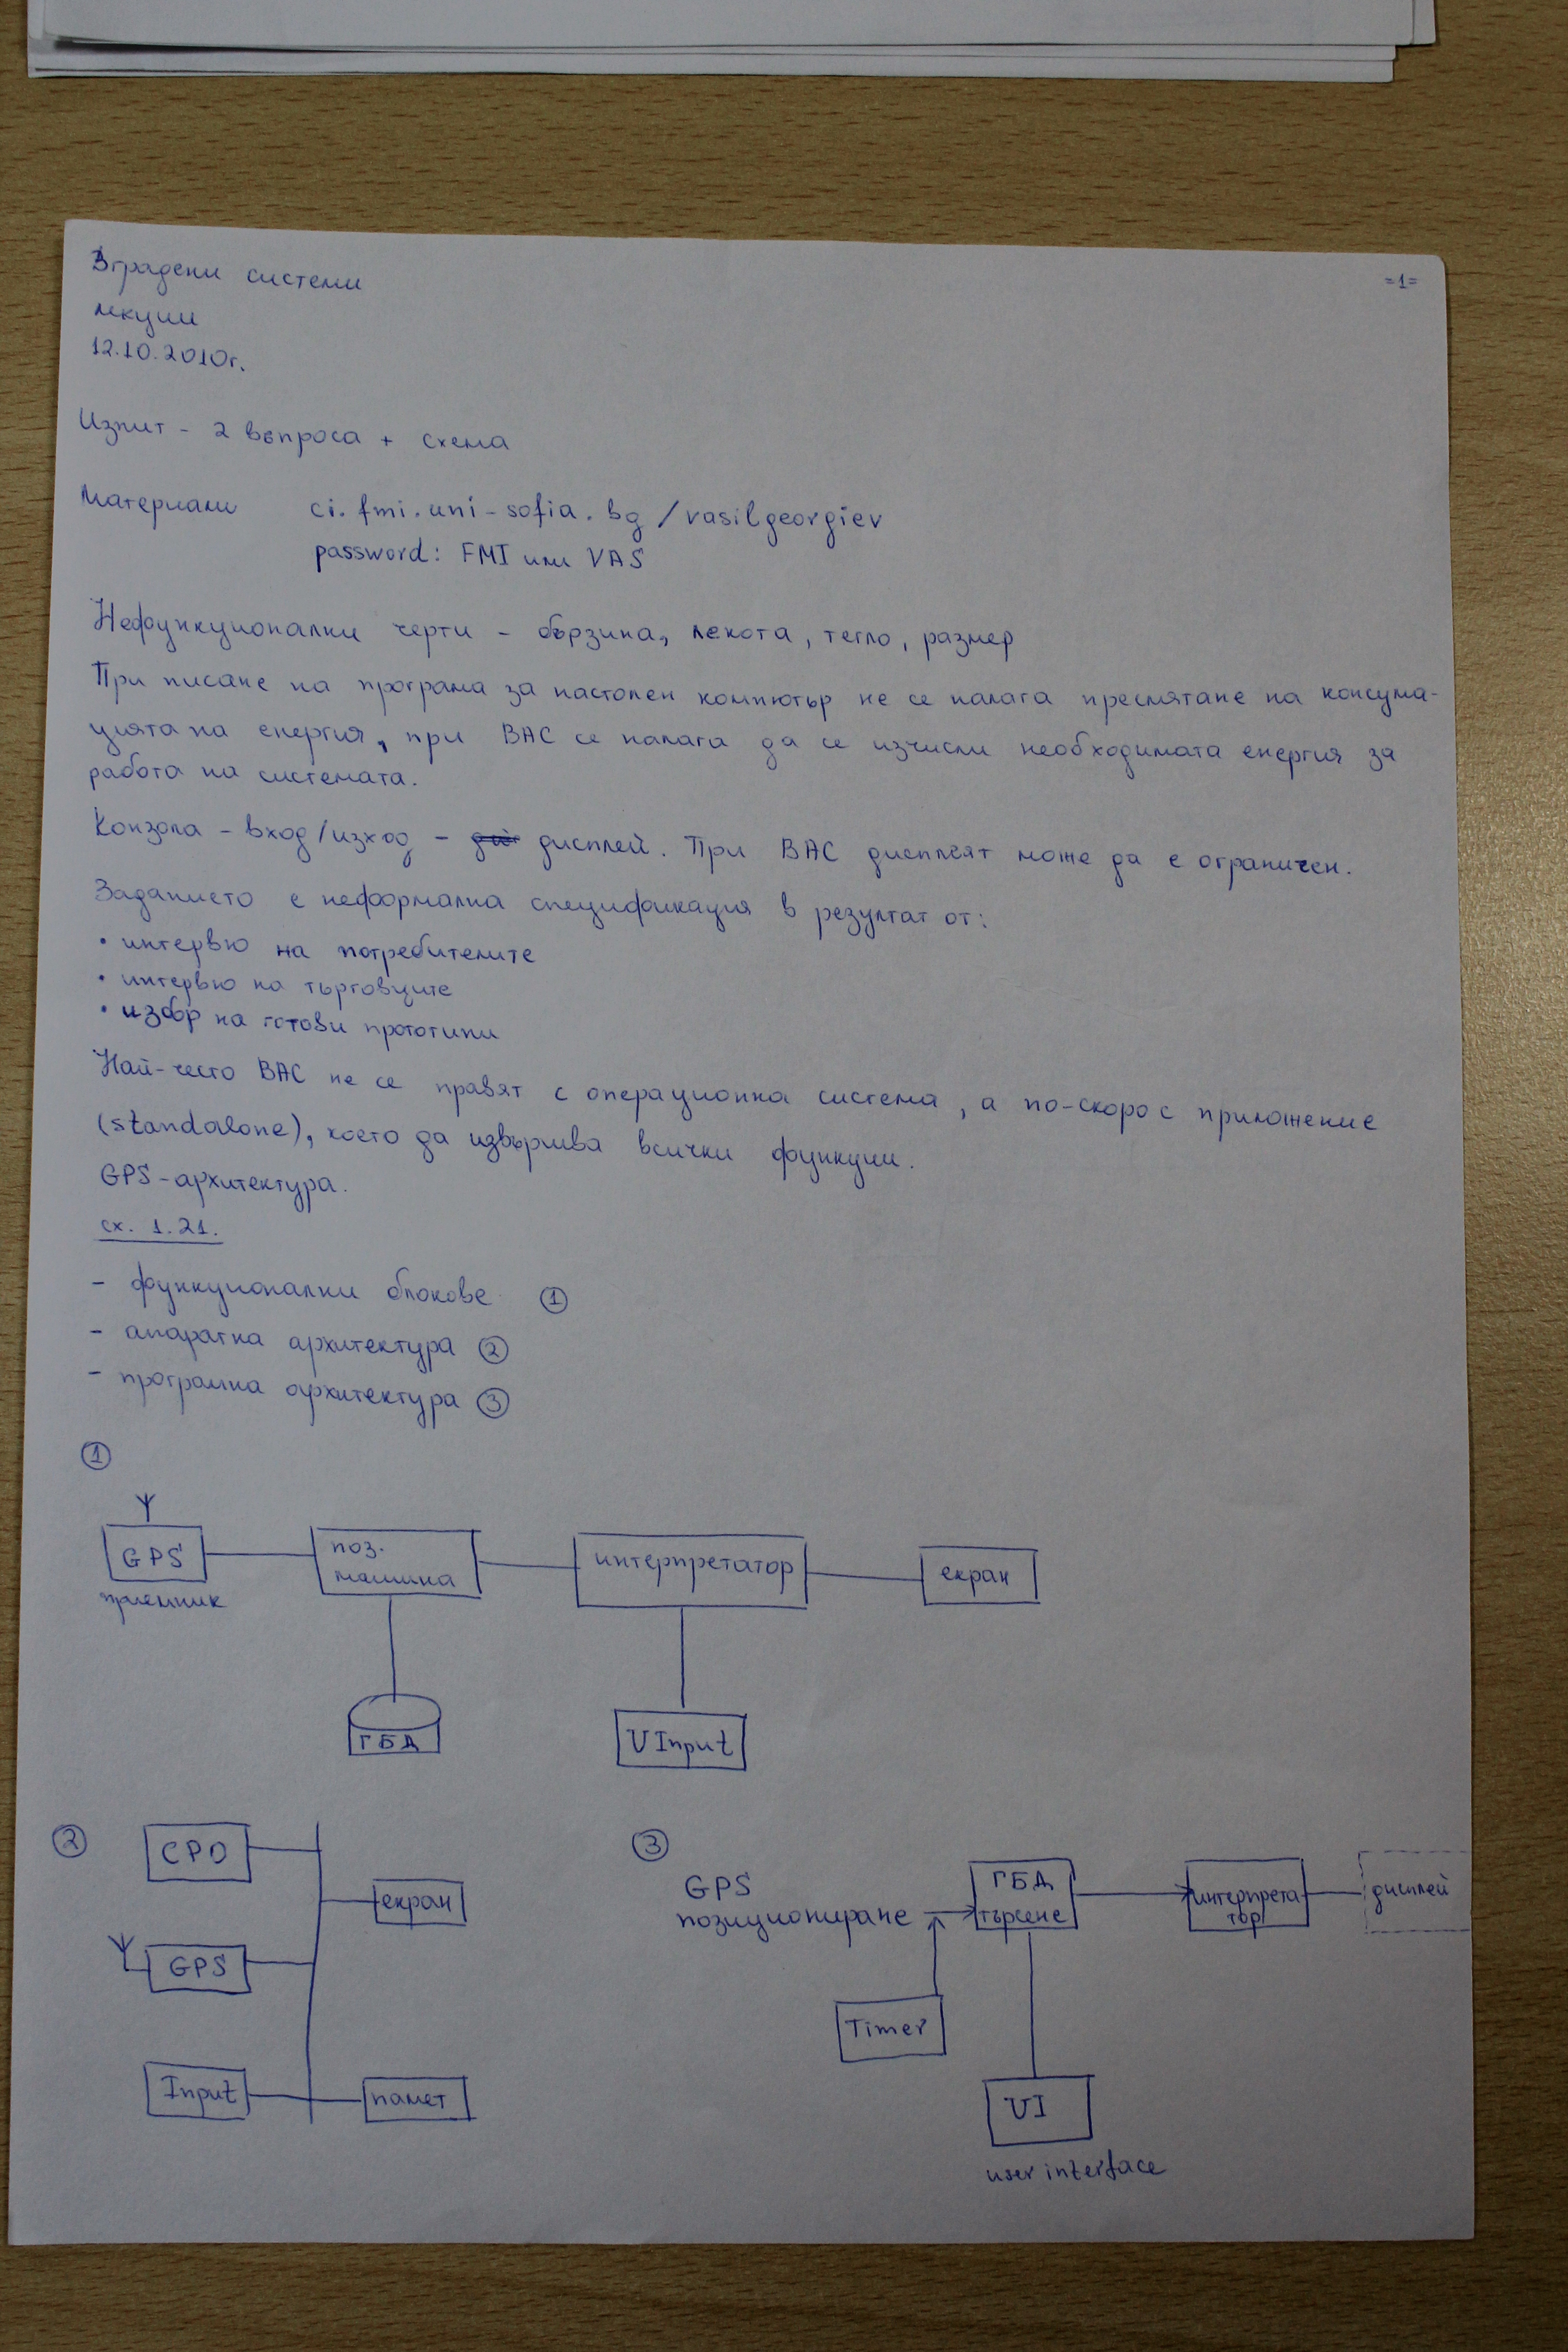 Вградени системи
=1=
лекции
12.10.2010г.
Изпит - 2 въпроса + схема
Материали ci.fmi.uni-sofia.bg/vasilgeorgiev
password: FMI или VAS
Нефункционални черти - бързина, лекота, тегло, размер
При писане на програма за настолен компютър не се налага пресмятане на консума-
цията на енергия, при ВАС се налага да се изчисли необходимата енергия за
работа на системата.
Конзола - вход/изход - дисплей. При ВАС дисплеят може да е ограничен.
Заданието е неформална спецификация в резултат от:
• интервю на потребителите
• интервю на търговците
• избор на готови прототипи
Най-често ВАС не се правят с операционна система, а по-скоро с приложение
(standalone), което да извършва всички функции.
GPS-архитектура.
сх. 1.21.
- функционални блокове ①
- апаратна архитектура ②
- програмна архитектура ③
①
GPS
приемник
поз.
машина
интерпретатор
екран
ГБД
UInput
②
CPU
екран
GPS
Input
памет
③
GPS
позициониране
ГБД
търсене
интерпрета-
тор
дисплей
Timer
UI
user interface